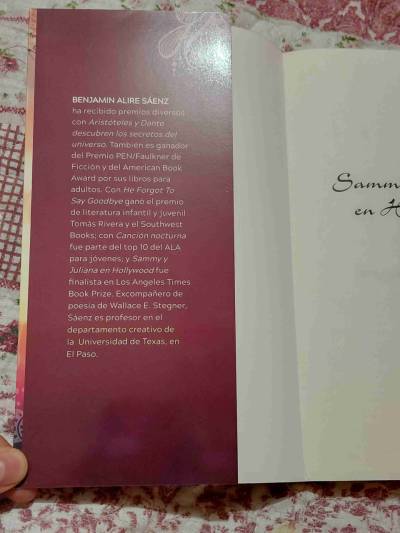 BENJAMIN ALIRE SÁENZ
ha recibido premios diversos
con Aristóteles y Dante
descubren los secretos del
universo. También es ganador
del Premio PEN/Faulkner de
Ficción y del American Book
Award por sus libros para
adultos. Con He Forgot To
Say Goodbye ganó el premio
de literatura infantil y juvenil
Tomás Rivera y el Southwest
Books; con Canción nocturna
fue parte del top 10 del ALA
para jóvenes; y Sammy y
Juliana en Hollywood fue
finalista en Los Angeles Times
Book Prize. Excompañero de
poesía de Wallace E. Stegner,
Sáenz es profesor en el
departamento creativo de
la Universidad de Texas, en
El Paso.
Samm
en H